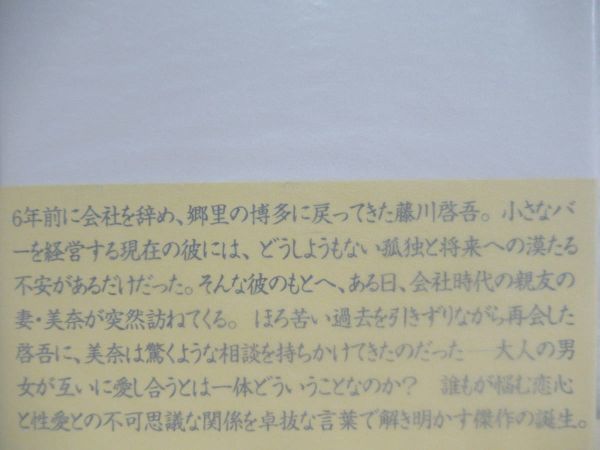 6年前に会社を辞め、郷里の博多に戻ってきた藤川啓吾。小さなバ
ーを経営する現在の彼には、どうしようもない孤独と将来への漠たる
不安があるだけだった。そんな彼のもとへ、ある日、会社時代の親友の
妻・美奈が突然訪ねてくる。ほろ苦い過去を引きずりながら再会した
啓吾に、美奈は驚くような相談を持ちかけてきたのだった――大人の男
女が互いに愛し合うとは一体どういうことなのか？　誰もが悩む恋心
と性愛との不可思議な関係を卓抜な言葉で解き明かす傑作の誕生。